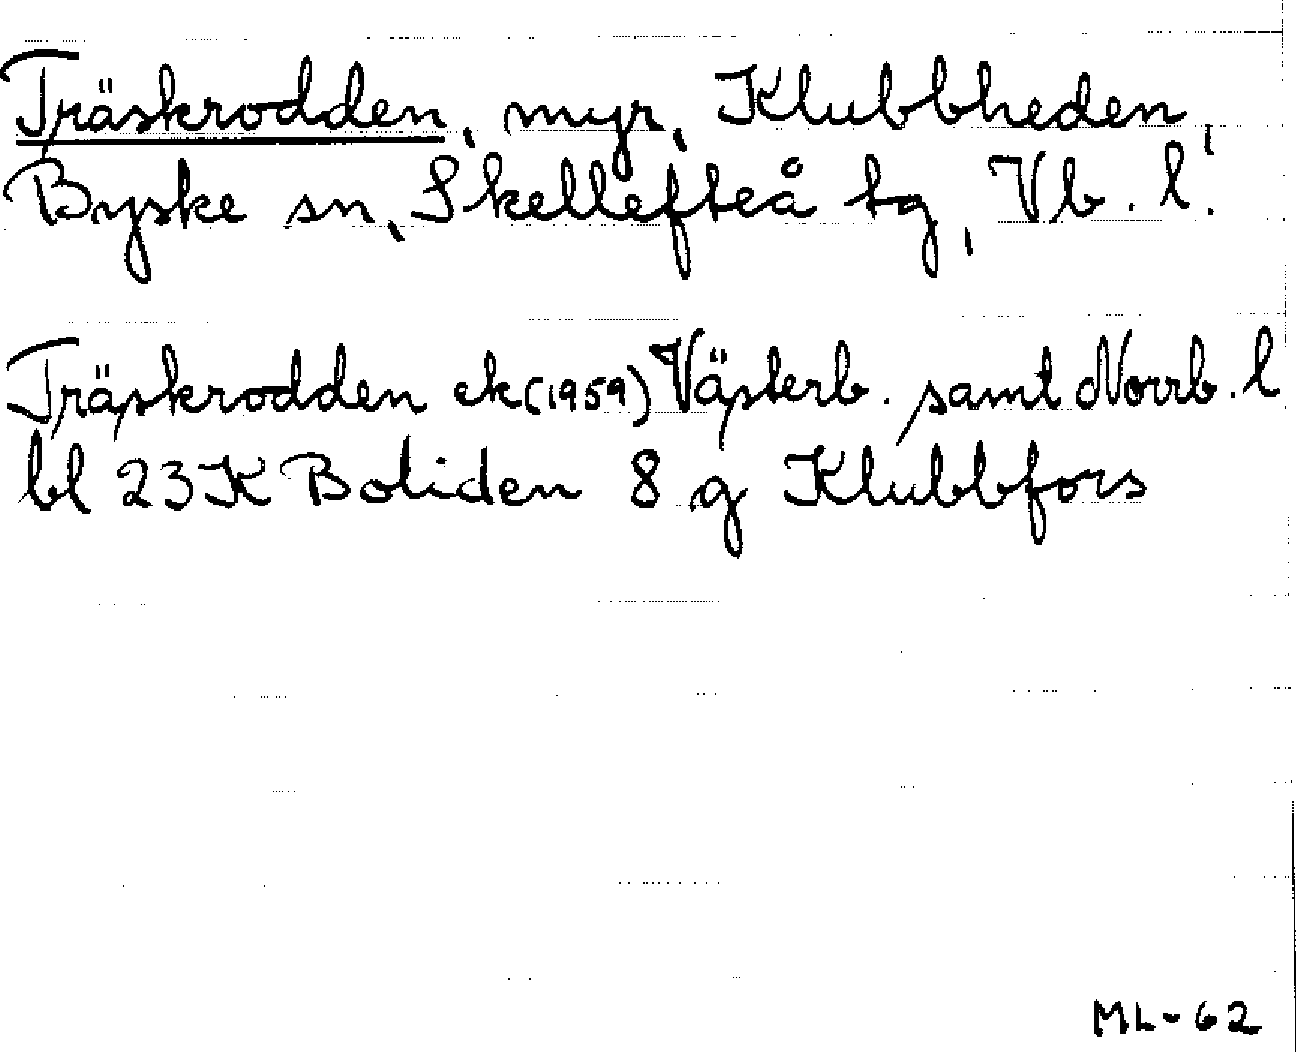 Träskrodden, myr, Klubbheden,
Byske sn, Skellefteå tg, Vb. l.
Träskrodden ek (1959) Västerb. samt Norrb. l
bl 23 K Boliden 8 g Klubbfors
ML-62